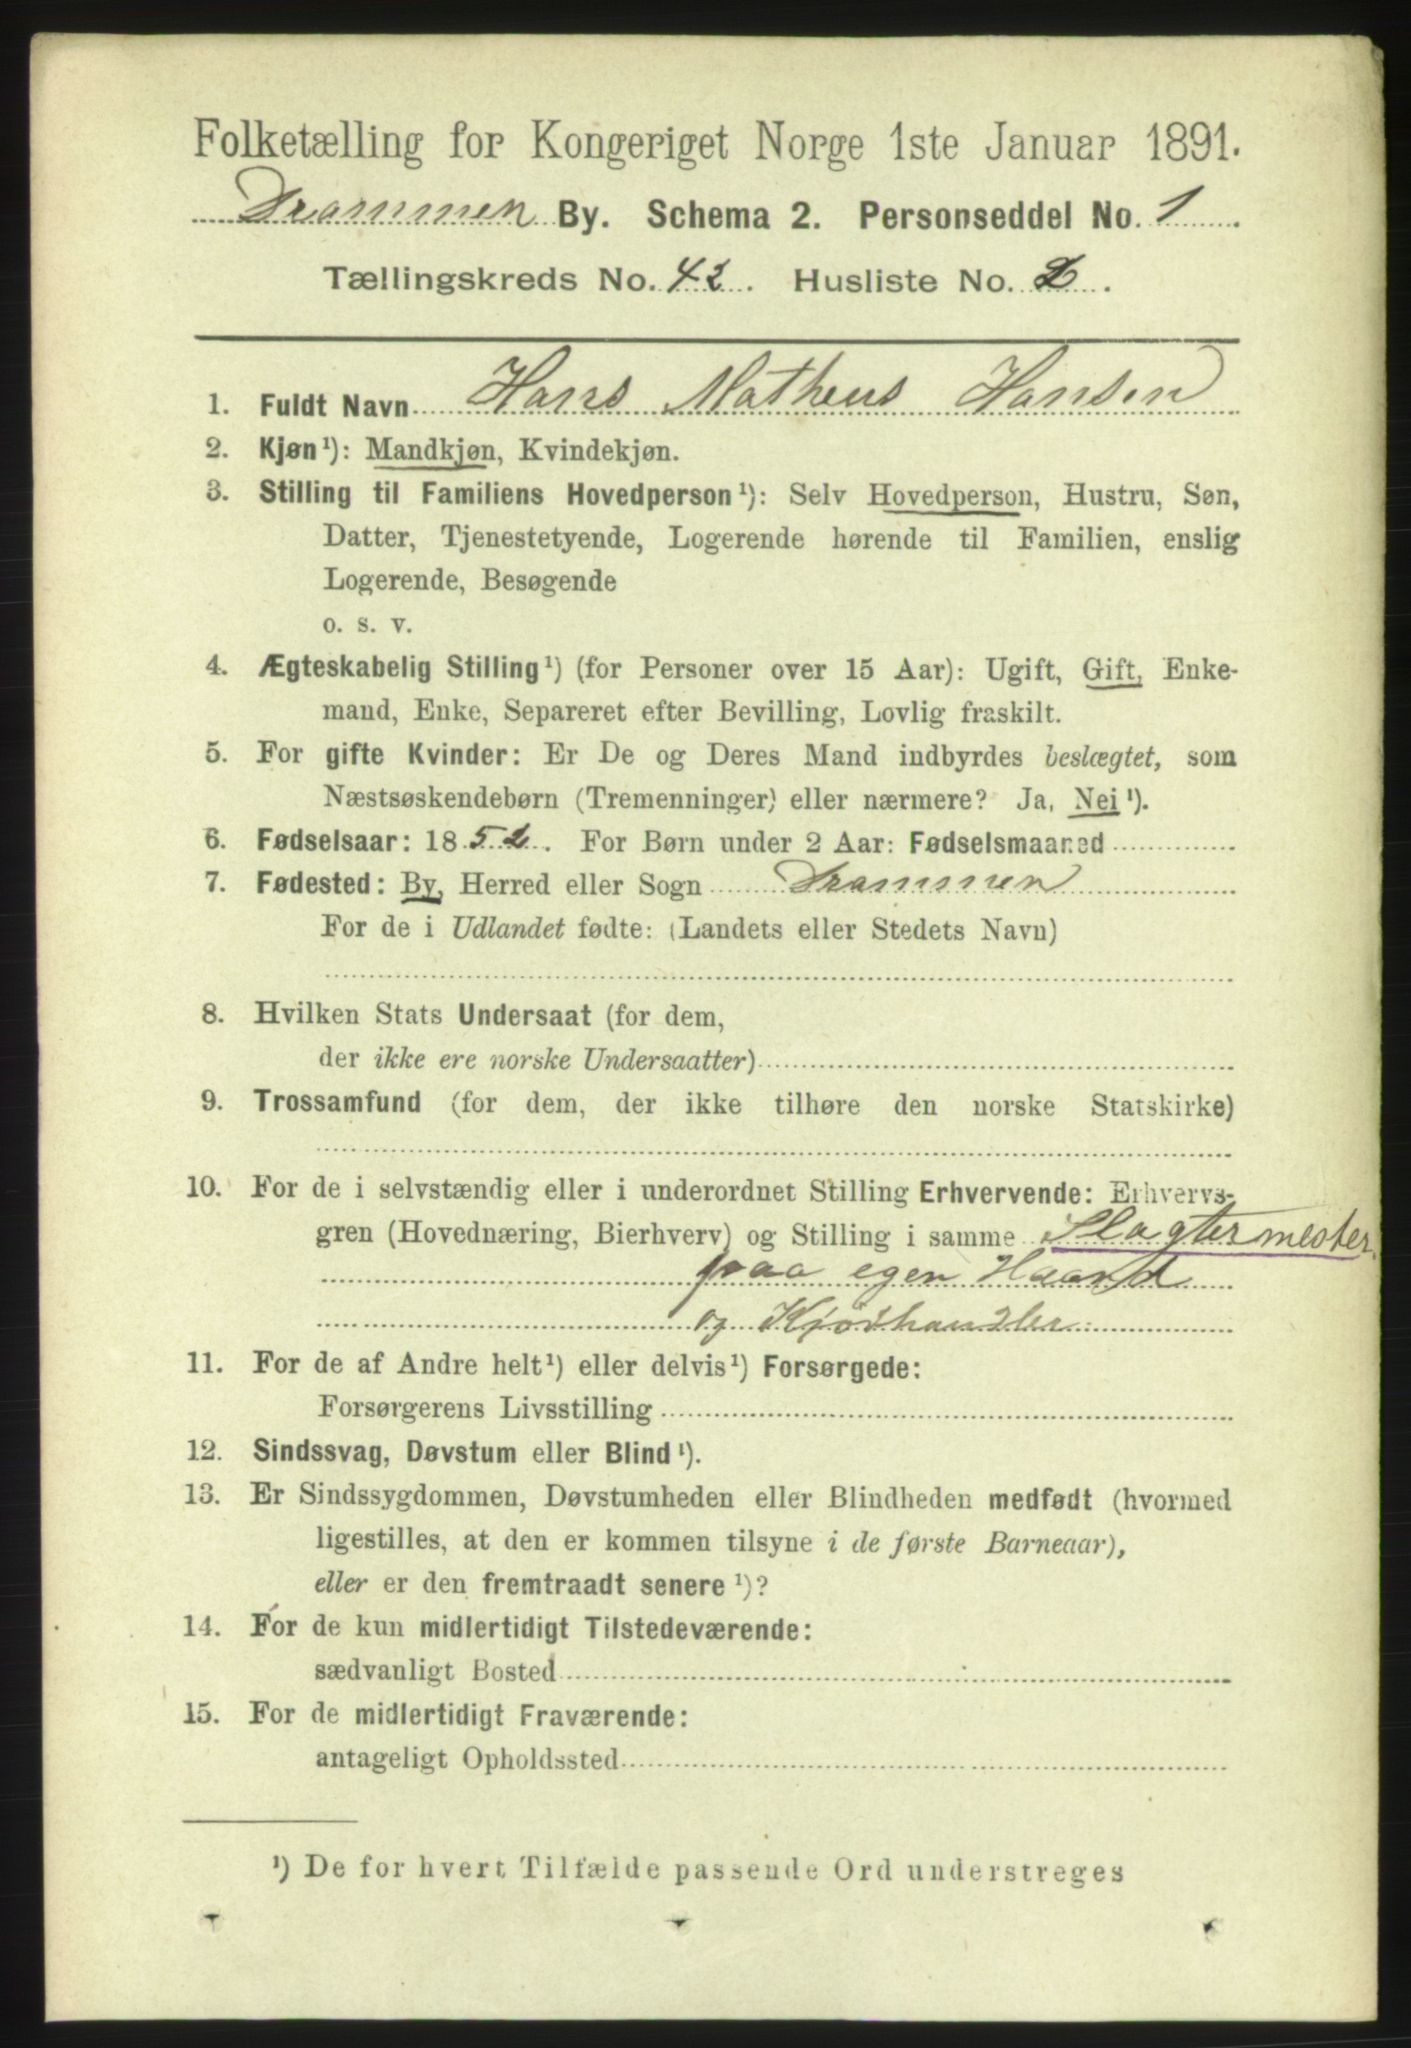 Folketælling for Kongeriget Norge 1ste Januar 1891.
Drammen By. Schema 2. Personseddel No. 1
Tællingskreds No. 42. Husliste No. 2.
1. Fuldt Navn Hans Matheus Hansen
2. Kjøn¹): Mandkjøn, Kvindekjøn.
3. Stilling til Familiens Hovedperson¹): Selv Hovedperson, Hustru, Søn,
Datter, Tjenestetyende, Logerende hørende til Familien, enslig
Logerende, Besøgende
o. s. v.
4. Ægteskabelig Stilling¹) (for Personer over 15 Aar): Ugift, Gift, Enke-
mand, Enke, Separeret efter Bevilling, Lovlig fraskilt.
5. For gifte Kvinder: Er De og Deres Mand indbyrdes beslægtet, som
Næstsøskendebørn (Tremenninger) eller nærmere? Ja, Nei¹).
6. Fødselsaar: 1852. For Børn under 2 Aar: Fødselsmaaned
7. Fødested: By, Herred eller Sogn Drammen
For de i Udlandet fødte: (Landets eller Stedets Navn)
8. Hvilken Stats Undersaat (for dem,
der ikke ere norske Undersaatter)
9. Trossamfund (for dem, der ikke tilhøre den norske Statskirke)
10. For de i selvstændig eller i underordnet Stilling Erhvervende: Erhvervs-
gren (Hovednæring, Bierhverv) og Stilling i samme Slagtermester
paa egen Haand
og Kjødhandler
11. For de af Andre helt¹) eller delvis¹) Forsørgede:
Forsørgerens Livsstilling
12. Sindssvag, Døvstum eller Blind¹).
13. Er Sindssygdommen, Døvstumheden eller Blindheden medfødt (hvormed
ligestilles, at den er kommen tilsyne i de første Barneaar),
eller er den fremtraadt senere¹)?
14. For de kun midlertidigt Tilstedeværende:
sædvanligt Bosted
15. For de midlertidigt Fraværende:
antageligt Opholdssted
¹) De for hvert Tilfælde passende Ord understreges